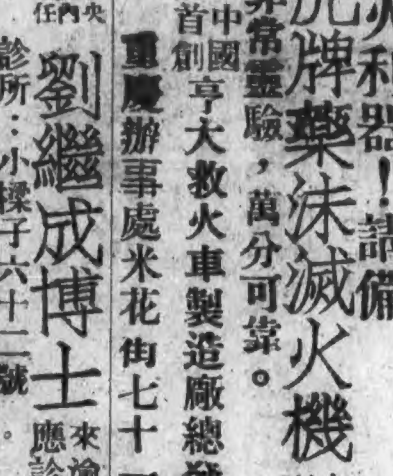 火利器！請備
牌藥沫滅火機
非常靈驗，萬分可靠。
中國
首創
亨大救火車製造廠總發
重慶辦事處米花街七十
央
內
任
劉繼成博士
來渝
應診
診所：小樑子六十二號。